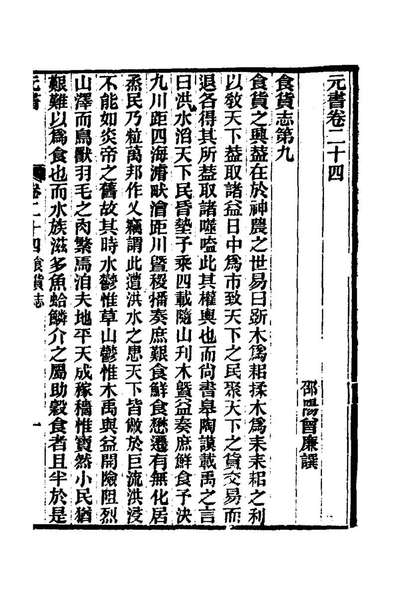 元書卷二十四
邵陽曾廉譔
食貨志第九
食貨之興葢在於神農之世易曰斲木爲耜揉木爲耒耒耜之利
以敎天下葢取諸益日中爲市致天下之民聚天下之貨交易而
退各得其所葢取諸噬嗑此其權輿也而尚書臯陶謨載禹之言
曰洪水滔天下民昏墊予乘四載隨山刋木曁益奏庶鮮食予決
九川距四海濬畎澮距川曁稷播奏庶艱食鮮食懋遷有無化居
烝民乃粒萬邦作乂竊謂此遭洪水之患天下皆敝於巨流洪浸
不能如炎帝之舊故其時水鬱惟草山鬱惟木禹與益開險阻烈
山澤而鳥獸羽毛之肉繁焉洎夫地平天成稼穡惟寶然小民猶
艱難以爲食也而水族滋多魚蛤鱗介之屬助穀食者且半於是
元書
卷二十四食貨志
一